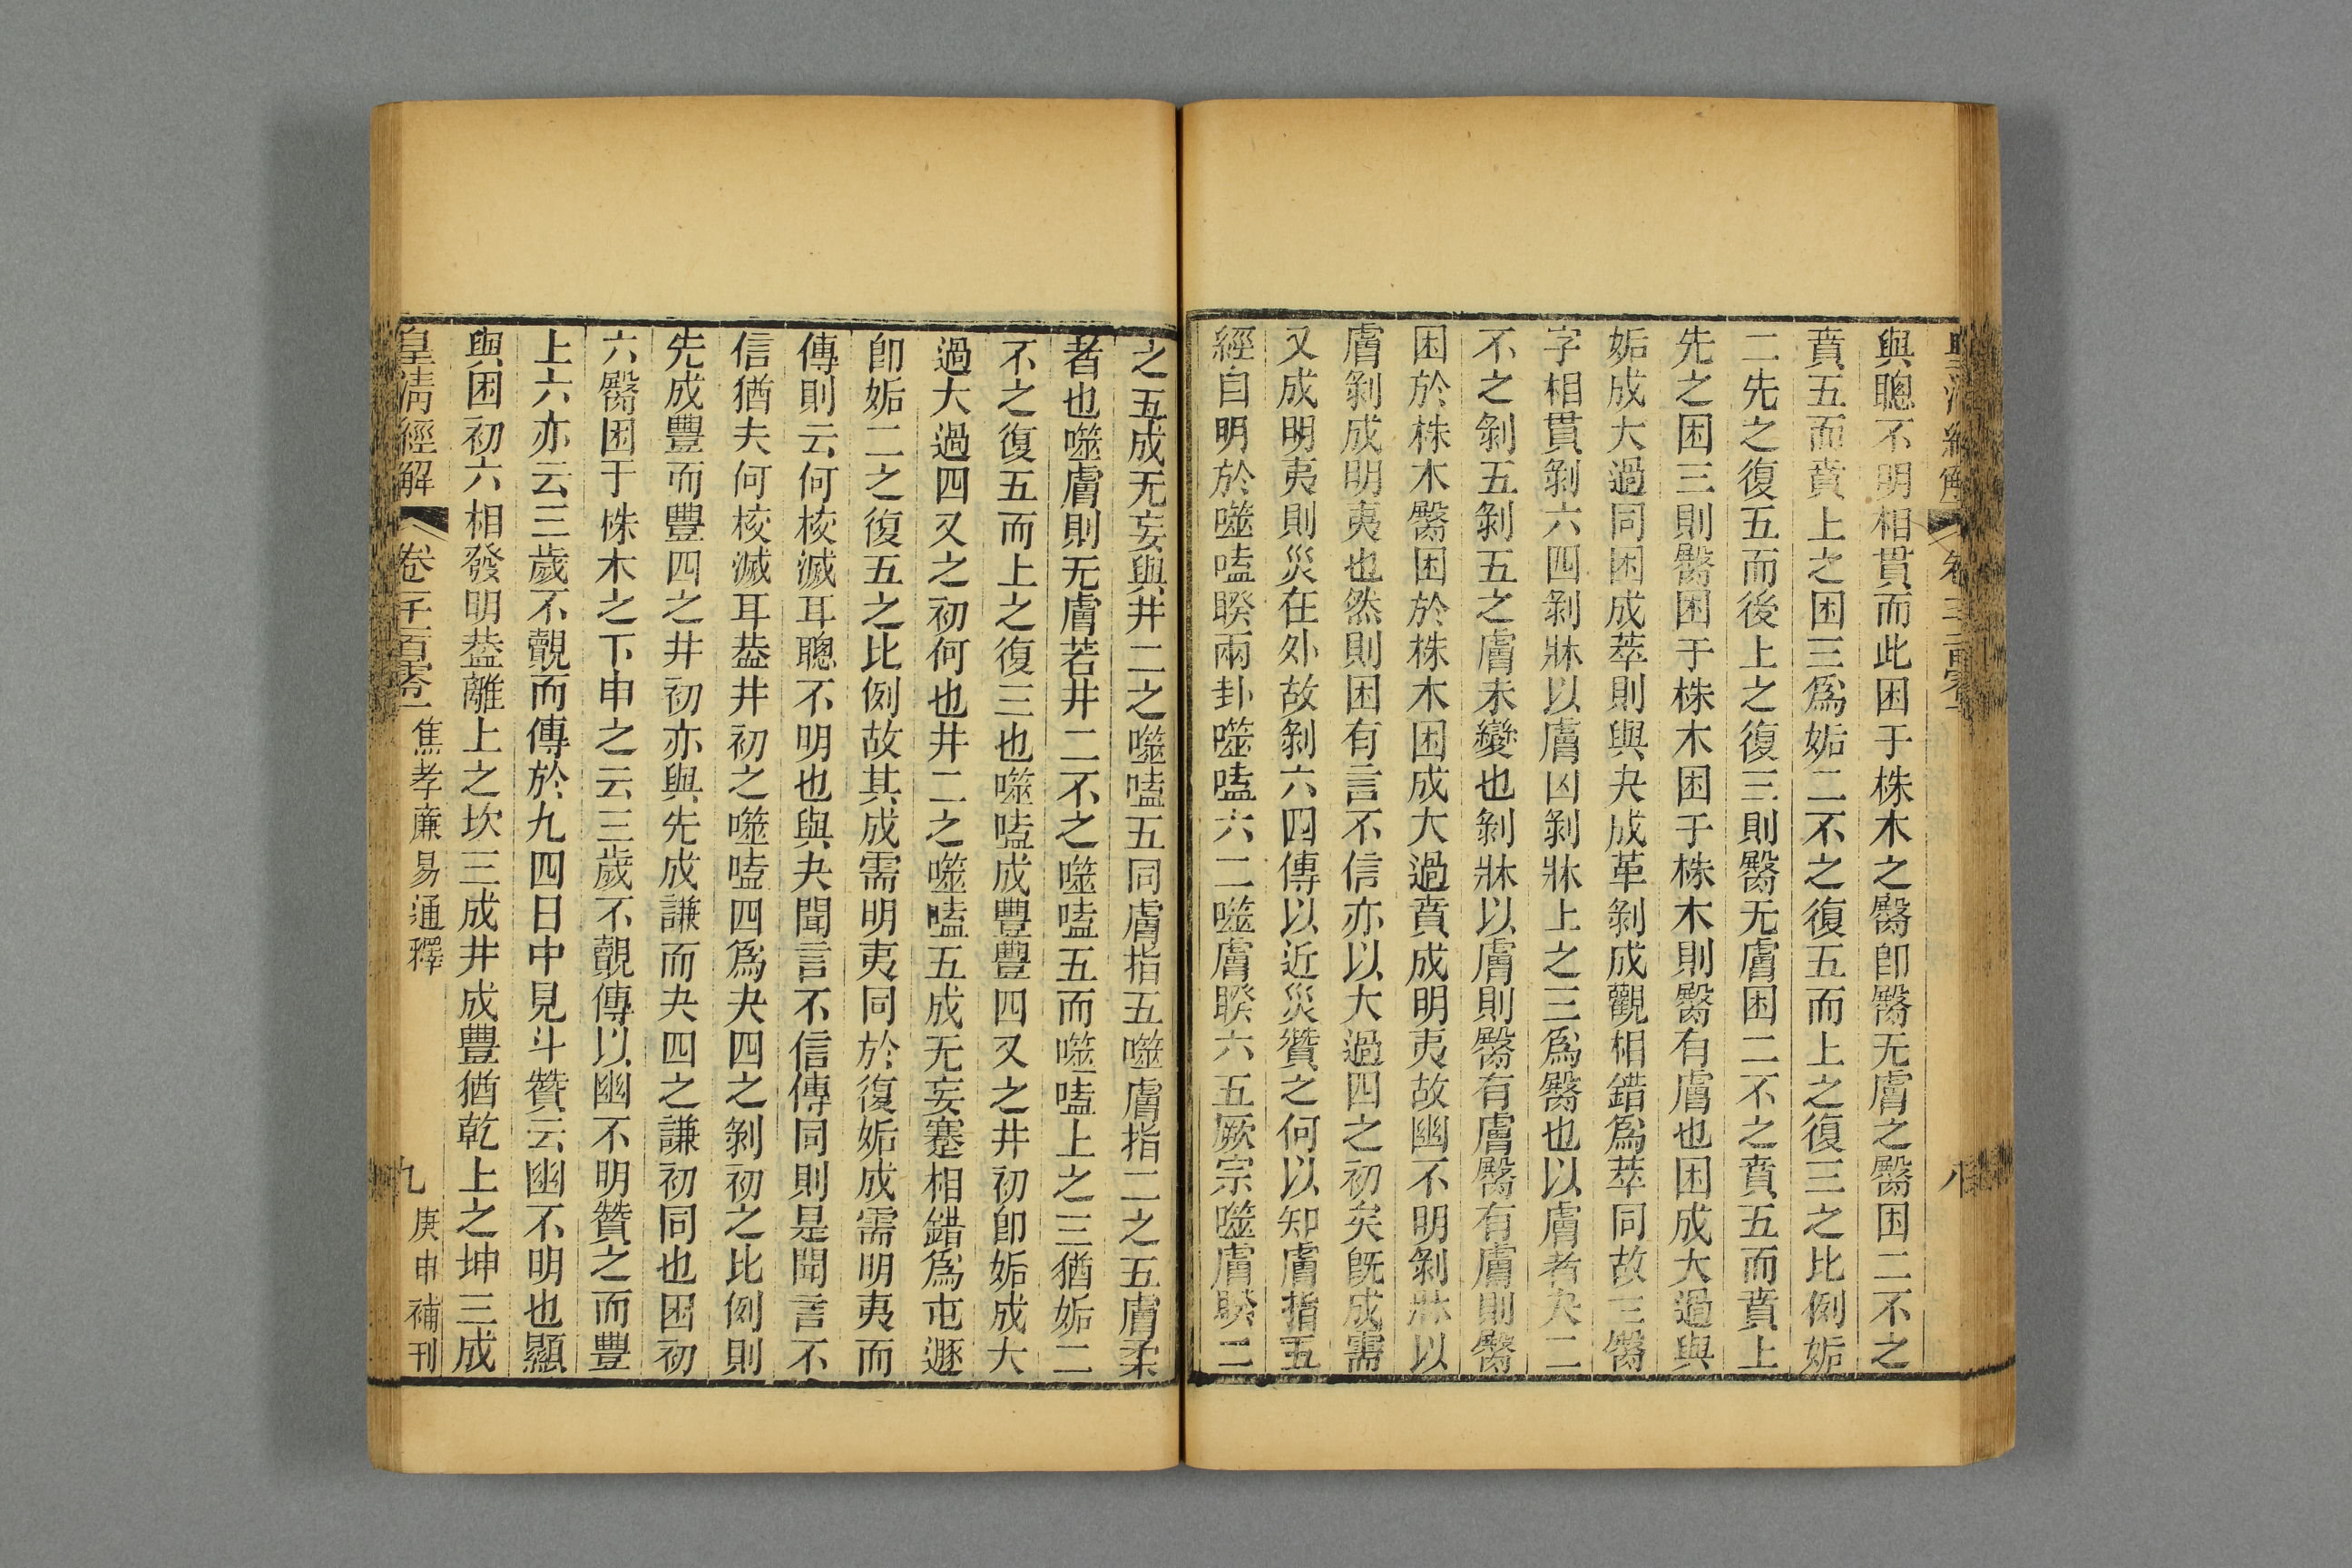 與聰不明相貫而此困于株木之臀卽臀无膚之臀困二不之
賁五而賁上之困三爲姤二不之復五而上之復三之比例姤
二先之復五而後上之復三則臀无膚困二不之賁五而賁上
先之困三則臀困于株木困于株木則臀有膚也困成大過與
姤成大過同困成萃則與夬成革剝成觀相錯爲萃同故三臀
字相貫剝六四剝牀以膚凶剝牀上之三爲臀也以膚者夬二
不之剝五剝五之膚未變也剝牀以膚則臀有膚臀有膚則臀
困於株木臀困於株木困成大過賁成明夷故幽不明剝牀以
膚剝成明夷也然則困有言不信亦以大過四之初矣旣成需
又成明夷則災在外故剝六四傳以近災贊之何以知膚指五
經自明於噬嗑睽兩卦噬嗑六二噬膚睽六五厥宗噬膚睽二
之五成无妄與井二之噬嗑五同膚指五噬膚指二之五膚柔
者也噬膚則无膚若井二不之噬嗑五而噬嗑上之三猶姤二
不之復五而上之復三也噬嗑成豐豐四又之井初卽姤成大
過大過四又之初何也井二之噬嗑五成无妄蹇相錯爲屯遯
卽姤二之復五之比例故其成需明夷同於復姤成需明夷而
傳則云何校滅耳聰不明也與夬聞言不信傳同則是聞言不
信猶夫何校滅耳葢井初之噬嗑四爲夬四之剝初之比例則
先成豐而豐四之井初亦與先成謙而夬四之謙初同也困初
六臀困于株木之下申之云三歲不覿傳以幽不明贊之而豐
上六亦云三歲不覿而傳於九四日中見斗贊云幽不明也顯
與困初六相發明葢離上之坎三成井成豐猶乾上之坤三成
皇淸經解 卷一千一百零一 焦孝廉易通釋 九 庚申補刊